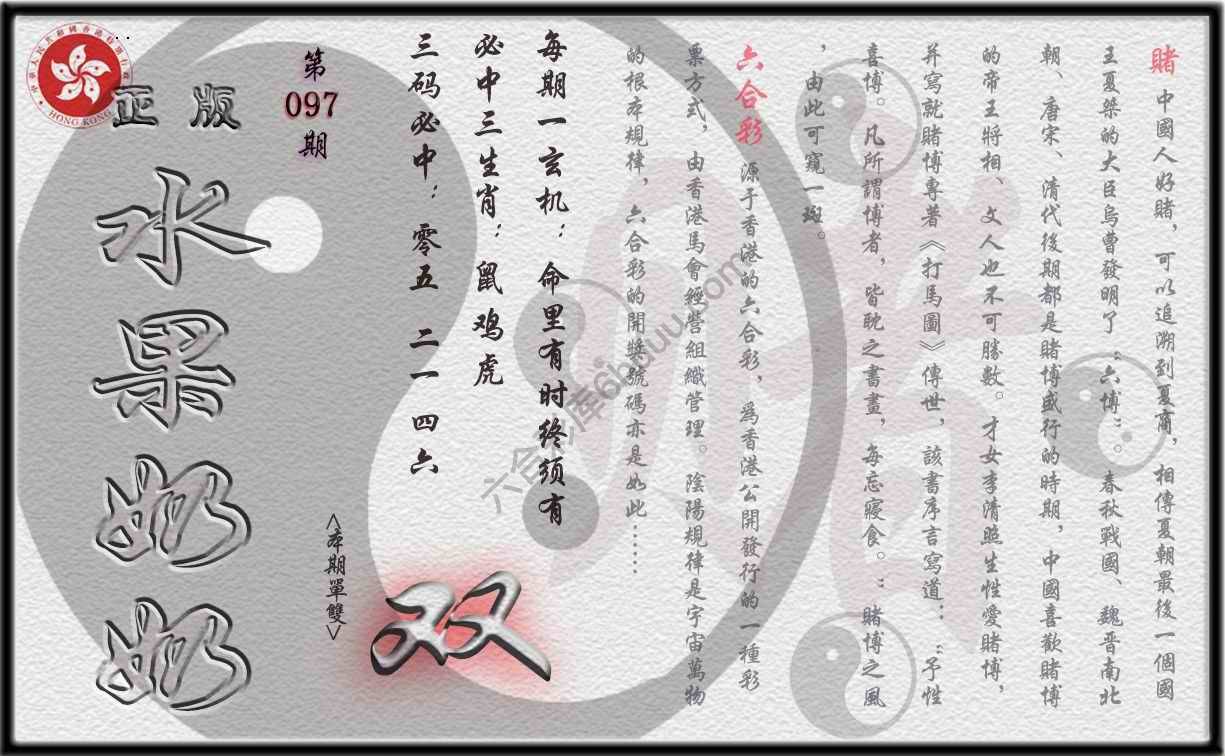 賭 中國人好賭，可以追溯到夏商，相傳夏朝最後一個國
王夏桀的大臣烏曹發明了“六博”。春秋戰國、魏晋南北
朝、唐宋、清代後期都是賭博盛行的時期，中國喜歡賭博
的帝王將相、文人也不可勝數。才女李清照生性愛賭博，
并寫就賭博專著《打馬圖》傳世，該書序言寫道：“予性
喜博。凡所謂博者，皆耽之書畫，每忘寢食。”賭博之風
，由此可窺一斑。
六合彩 源于香港的六合彩，為香港公開發行的一種彩
票方式，由香港馬會經營組織管理。陰陽規律是宇宙萬物
的根本規律，六合彩的開獎號碼亦是如此……
每期一玄机：命里有时终须有
必中三生肖：鼠鸡虎
三码必中：零五 二一 四六
双
<本期單雙>
第
097
期
正版
水果奶奶
中華人民共和國香港特別行政區
HONG KONG
六合彩库6hduuu.com